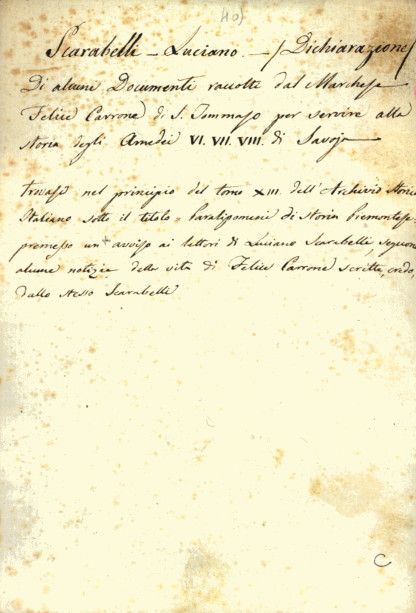 40)
Scarabelli – Luciano – (Dichiarazione)
Di alcuni Documenti raccolti dal Marchese
Felice Carrone di S. Tommaso per servire alla
storia degli Amedei VI. VII. VIII. di Savoja
trovasi nel principio del tomo XIII. dell'Archivio Storico
Italiano sotto il titolo = Paralipomeni di storia Piemontese –
premesso un avviso ai lettori di Luciano Scarabelli, seguono
alcune notizie della vita di Felice Carrone scritte, credo,
dallo stesso Scarabelli
C